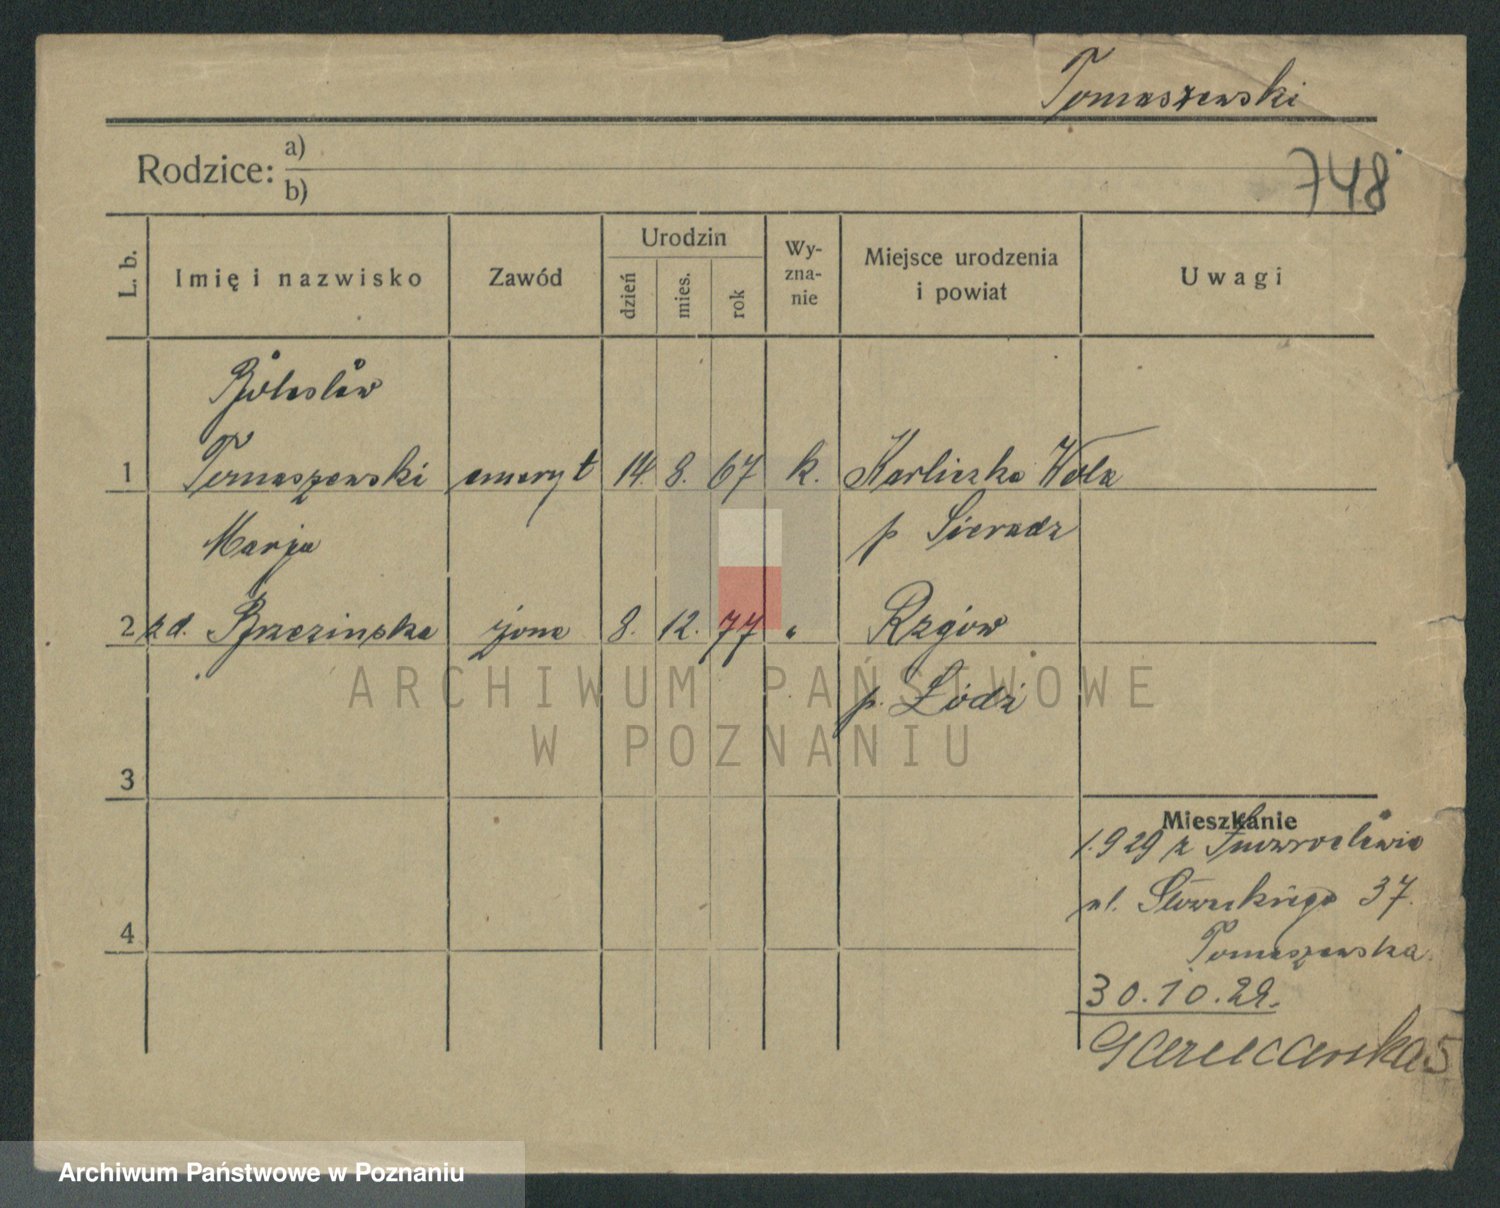 Tomaszewski
748
Rodzice: a)
b)
L. b.
Imię i nazwisko
Zawód
Urodzin
dzień
mies.
rok
Wy-
zna-
nie
Miejsce urodzenia
i powiat
Uwagi
Bolesław
1 Tomaszewski emeryt 14. 8. 67 k. Karliczka Wola
p Sieradz
Marja
2 z d. Brzezinska żona 8. 12. 77 " Rzgów
p. Łódź
3
4
Mieszkanie
1.9 29 z Inowrocławia
ul. Słowackiego 37.
Tomaszewska
30.10.29.
5
ARCHIWUM PAŃSTWOWE
W POZNANIU
Archiwum Państwowe w Poznaniu